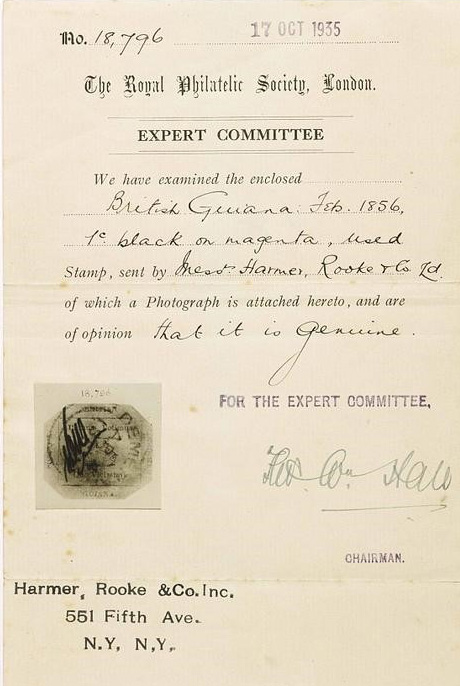 No. 18,796
17 OCT 1935
The Royal Philatelic Society, London.
EXPERT COMMITTEE
We have examined the enclosed
British Guiana: Feb. 1856,
1c black on magenta, used
Stamp, sent by Messrs Harmer, Rooke & Co Ld.
of which a Photograph is attached hereto, and are
of opinion that it is Genuine.
18,796
FOR THE EXPERT COMMITTEE,
GUIANA
Hall
CHAIRMAN.
Harmer, Rooke &Co.Inc.
551 Fifth Ave.
N.Y, N,Y,